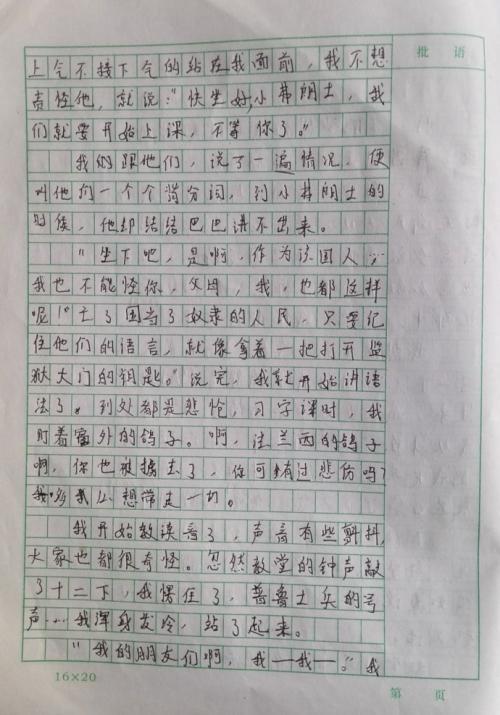 批语
上气不接下气的站在我面前，我不想
责怪他，就说："快坐好，小弗朗士，我
们就要开始上课，不等你了。"
我们跟他们，说了一遍情况，便
叫他们一个个背分词，到小弗朗士的
时候，他却结结巴巴讲不出来。
"坐下吧，是啊，作为法国人……
我也不能怪你，父母，我，也都这样
呢！"亡了国当了奴隶的人民，只要记
住他们的语言，就像拿着一把打开监
狱大门的钥匙。"说完，我就开始讲语
法了。到处都是悲怆，习字课时，我
盯着窗外的鸽子。啊，法兰西的鸽子
啊，你也被掳去了，你可有过悲伤吗？
想带走一切。
我开始教读音了，声音有些颤抖，
大家也都很奇怪。忽然教堂的钟声敲
了十二下，我愣住了，普鲁士兵的号
声……我浑身发冷，站了起来。
"我的朋友们啊，我—我—。"我
16×20
第 页